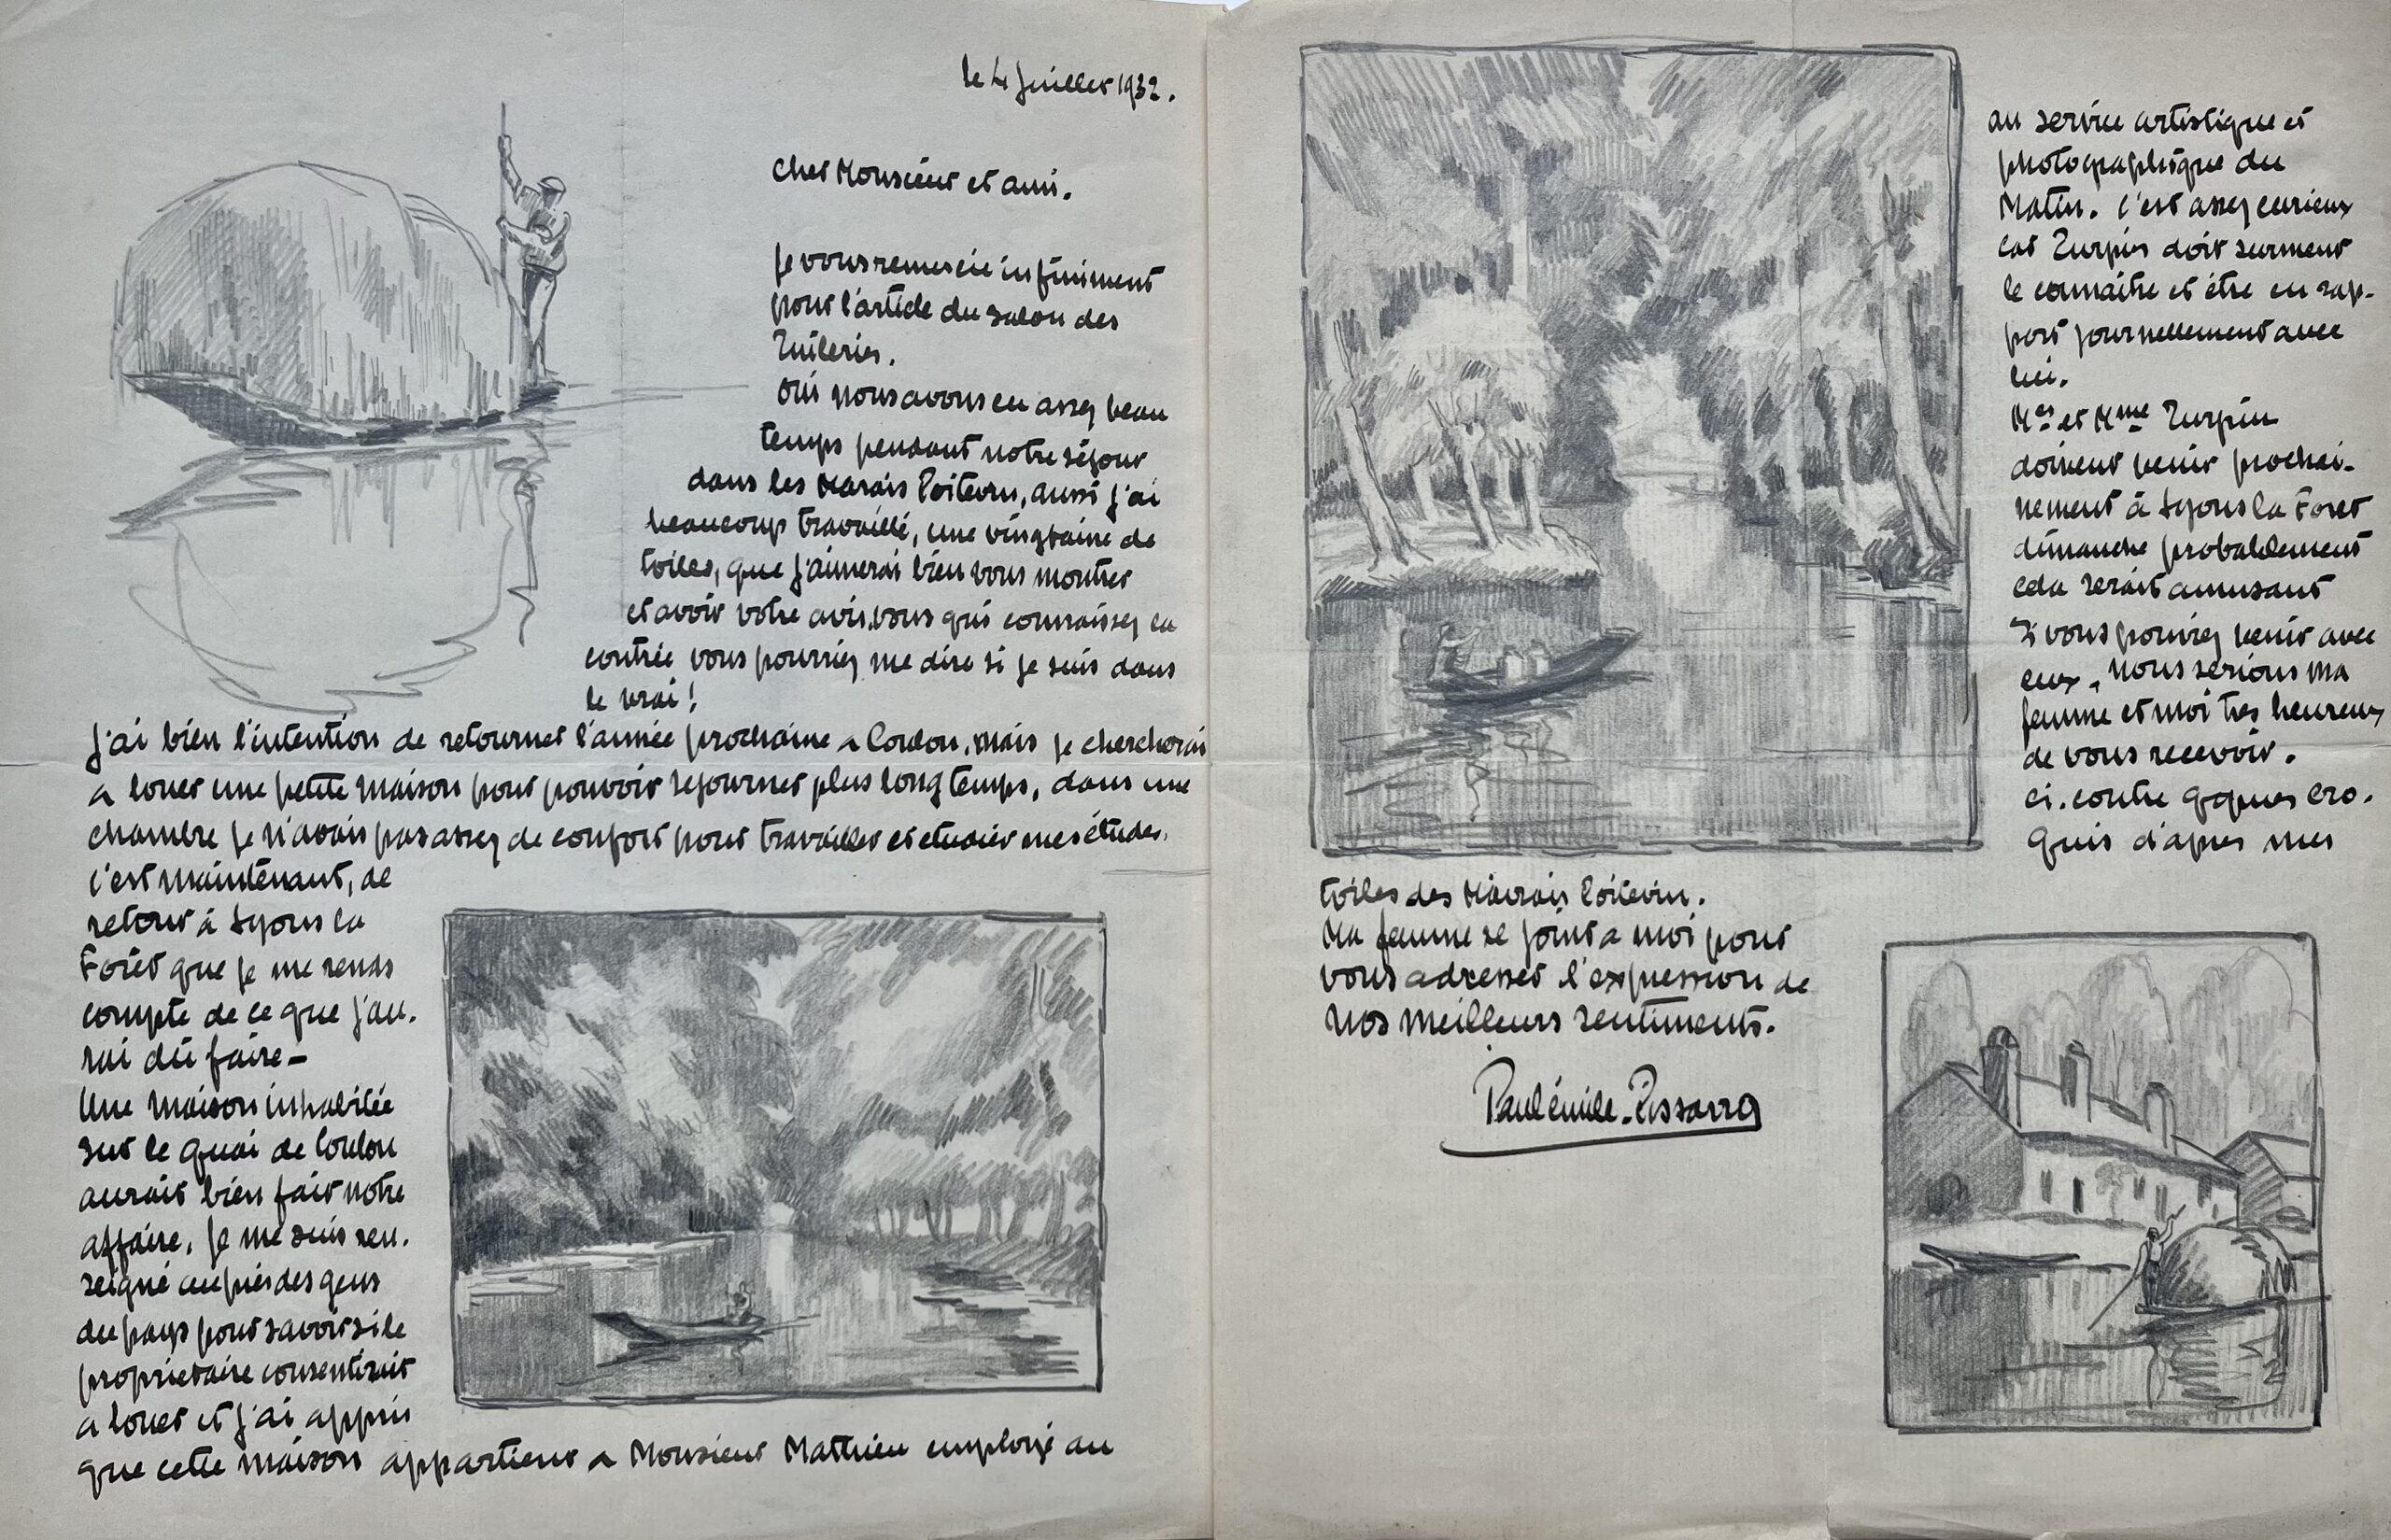 le 4 Juillet 1932.
Cher Monsieur et ami.
Je vous remercie infiniment
pour l'article du salon des
Tuileries.
Oui nous avons eu assez beau
temps pendant notre séjour
dans les Marais Poitevin, aussi j'ai
beaucoup travaillé, une vingtaine de
toiles, que j'aimerai bien vous montrer
et avoir votre avis, vous qui connaissez la
contrée vous pourriez me dire si je suis dans
le vrai!
J'ai bien l'intention de retourner l'année prochaine a Coulon, mais je chercherai
a louer une petite maison pour pouvoir sejourner plus longtemps, dans une
chambre je n'avais pas assez de confort pour travailler et etudier mes études.
C'est maintenant, de
retour à Lyons la
Forêt que je me rends
compte de ce que j'au.
rai dû faire—
Une maison inhabitée
sur le quai de Coulon
aurait bien fait notre
affaire. Je me suis ren.
seigné auprès des gens
du pays pour savoir si le
propriétaire consentirait
a louer et j'ai appris
que cette maison appartient a Monsieur Mathieu employé au
au service artistique et
photographique du
Matin. C'est assez curieux
car Turpin doit surement
le connaître et être en rap-
port journellement avec
lui.
Mr et Mme Turpin
doivent venir prochai-
nement à Lyons la Foret
dimanche probablement
cela serait amusant
Si vous pouviez venir avec
eux, nous serions ma
femme et moi très heureux
de vous recevoir.
Ci. contre qques cro.
quis d'apres mes
toiles des Marais Poitevin.
Ma femme se joint a moi pour
vous adresser l'expression de
nos meilleurs sentiments.
Paulémile-Pissarro